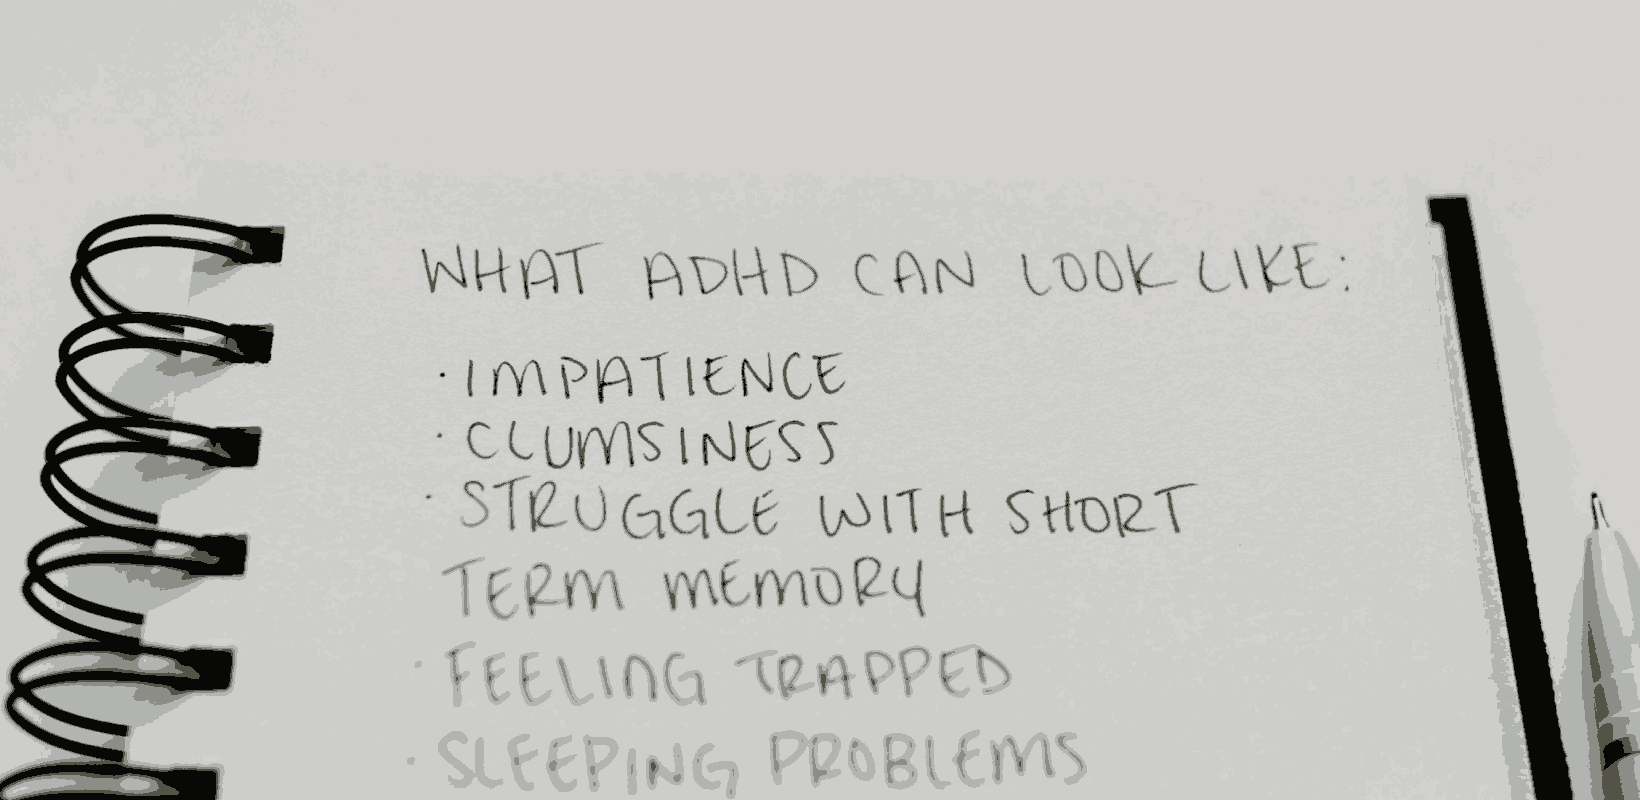 WHAT ADHD CAN LOOK LIKE:
· IMPATIENCE
· CLUMSINESS
· STRUGGLE WITH SHORT
TERM MEMORY
· FEELING TRAPPED
· SLEEPING PROBLEMS